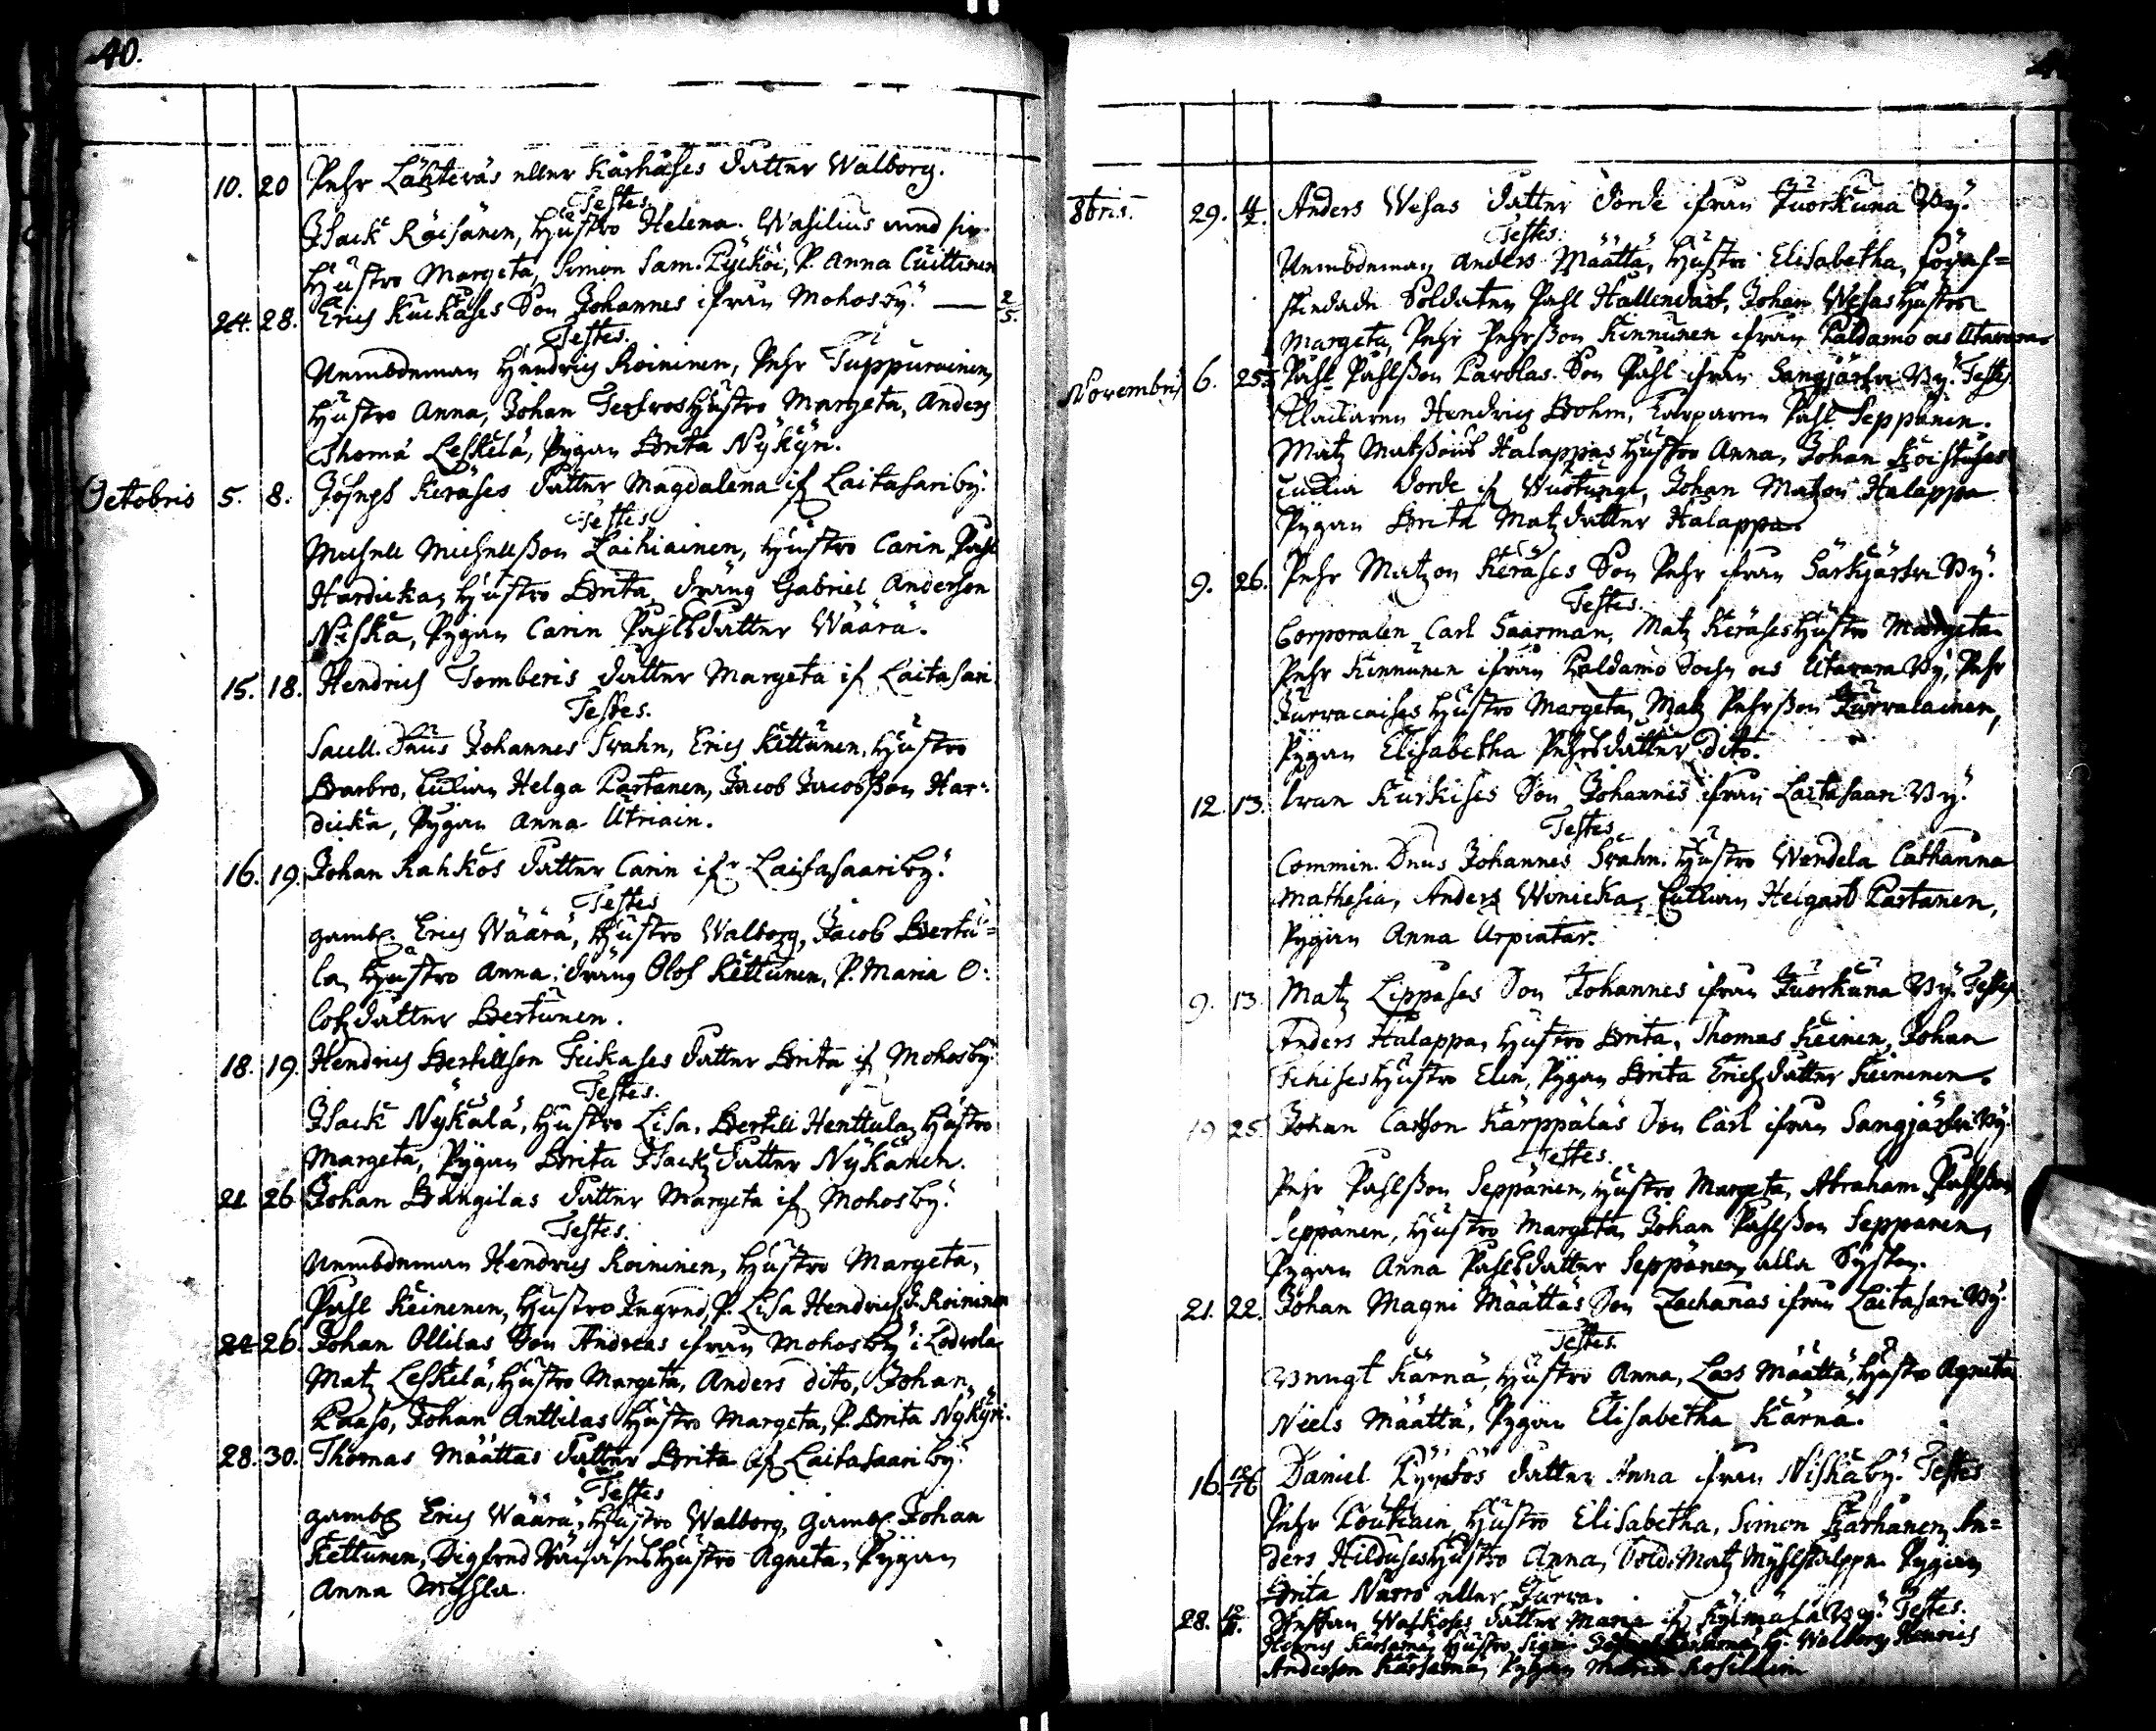 40.
10. 20 Pehr Lähteväs eller Karhäses dotter Walborg.
Testes
Isack Räisänen, Hustro Helena. Wasilius med sin
Hustro Margeta, Simon Sam. Pycköi, P. Anna Cuittinen
24. 28. Erich Kuckases Son Johannes ifrån Mohosby. — 2/5.
Testes.
Nembdeman Hendrich Roininen, Pehr Tuppurainen,
Hustro Anna, Johan Hustro Margeta, Anders
Thomä Leskelä, Pygan Brita Nykyri.
Octobris 5. 8. Joseph Keräses dotter Magdalena if Laitasariby.
Testes
Michell Michellsson Laihiainen, Hustro Carin Påhl
Hardicka, Hustro Brita, dräng Gabriel Anderson
Niska, Pygan Carin Påhlsdotter Wäärä.
15. 18. Hendrich Tomberis dotter Margeta if Laitasari
Testes.
Sacell. Dnus Johannes Frahn, Erich Kettunen, Hustro
Barbro, Enkian Helga Partanen, Jacob Jacobsson Har-
dicka, Pygan Anna Utriain.
16. 19. Johan Kahkos dotter Carin ifr Laitasaariby.
Testes
gambl. Erich Wäärä, Hustro Walborg, Jacob Bertu=
la, Hustro Anna, dräng Olof Kettunen, P. Maria O:
lofzdotter Bertunen.
18. 19. Hendrich Bertillson Tickases dotter Brita if Mohosby
Testes.
Isack Nykälä, Hustro Lisa, Bertill Henttula, Hustro
Margeta, Pygan Brita Isackz dotter Nykänen.
21 26 Johan Bångilas dotter Margeta if Mohosby.
Testes.
Nembdeman Hendrich Roininen, Hustro Margeta,
Påhl Keinenen, Hustro Ingred, P. Lisa Hendrichz d. Roininen
24 26. Johan Ollilas Son Andreas ifrån Mohosby i
Matz Leskelä, Hustro Margeta, Anders dito, Johan
Paaso, Johan Anttilas Hustro Margeta, P. Brita Nykyri.
28. 30. Thomas Määttas dotter Brita if Laitasaari by.
Testes
gambl Erich Wäärä, Hustro Walborg, gambl. Johan
Kettunen, Sigfred Hustro Agneta, Pygan
Anna
8bris. 29. Anders Wesas dotter Dorde ifrån Juorkuna By.
Testes.
Nembdeman Anders Määttä, Hustro Elisabetha,
Soldaten Påhl Hallendart, Johan Wesas Hustro
Margeta, Pehr Pehrsson Kinnunen ifrån Paldamo as Utarara
Novembris 6. 25. Påhl Påhlsson Parolas Son Påhl ifrån Sangjärfvi By. Testes
Hendrich Bohm, Påhl Seppänen.
Matz Halappas Hustro Anna, Johan
Dorde if Wuotunge, Johan Matzon Halappa
Pygan Brita Matz dotter Halappa.
9. 26. Pehr Matzon Keräses Son Pehr ifrån Särkjärfvi By.
Testes.
Corporalen Carl Saarman, Matz Keräses Hustro Margeta
Pehr Kinnunen ifrån Paldamo Sochn as Utarara By, Pehr
Hustro Margeta, Matz Pehrsson Turvalainen,
Pygan Elisabetha Pehrsdotter dito.
12. 13. Ivan Kurkises Son Johannis ifrån Laitasaari By.
Testes
Commin. Dnus Johannes Frahn, Hustro Wendela Catharina
Mathesia, Anders Winicka, Enkian Heigart Partanen,
Pygan Anna Urpiatar.
9. 13. Matz Lippases Son Johannes ifrån Juorkuna By. Testes
Anders Halappa, Hustro Brita, Thomas Keinen, Johan
Hustro Elin, Pygan Brita Erichz dotter Keinenen.
19 25. Johan Carlson Kärppäläs Son Carl ifrån Sangjärfvi By.
Testes.
Pehr Påhlsson Seppänen, Hustro Margeta, Abraham Påhlsson
Seppänen, Hustro Margeta, Johan Påhlsson Seppänen,
Pygan Anna Påhlsdotter Seppänen, alla Syskon.
21. 22. Johan Magni Määttäs Son Zacharias ifrån Laitasari By.
Testes.
Bengt Kärnä, Hustro Anna, Lars Määttä, Hustro Agneta
Niels Määttä, Pygan Elisabetha Kärnä.
16. Daniel Pyyckös dotter Anna ifrån Niskaby. Testes
Pehr Loukiain, Hustro Elisabetha, Simon Karhanen, An=
ders Hilduses Hustro Anna, Sold: Matz Pygan
Brita Narro eller Turva.
28. Steffan Walkoses dotter Maria if Kylmälä By. Testes.
Henrich Kärsämä, Hustro H. Walborg Henrich
Andersson Kärsämä, Pygan Maria